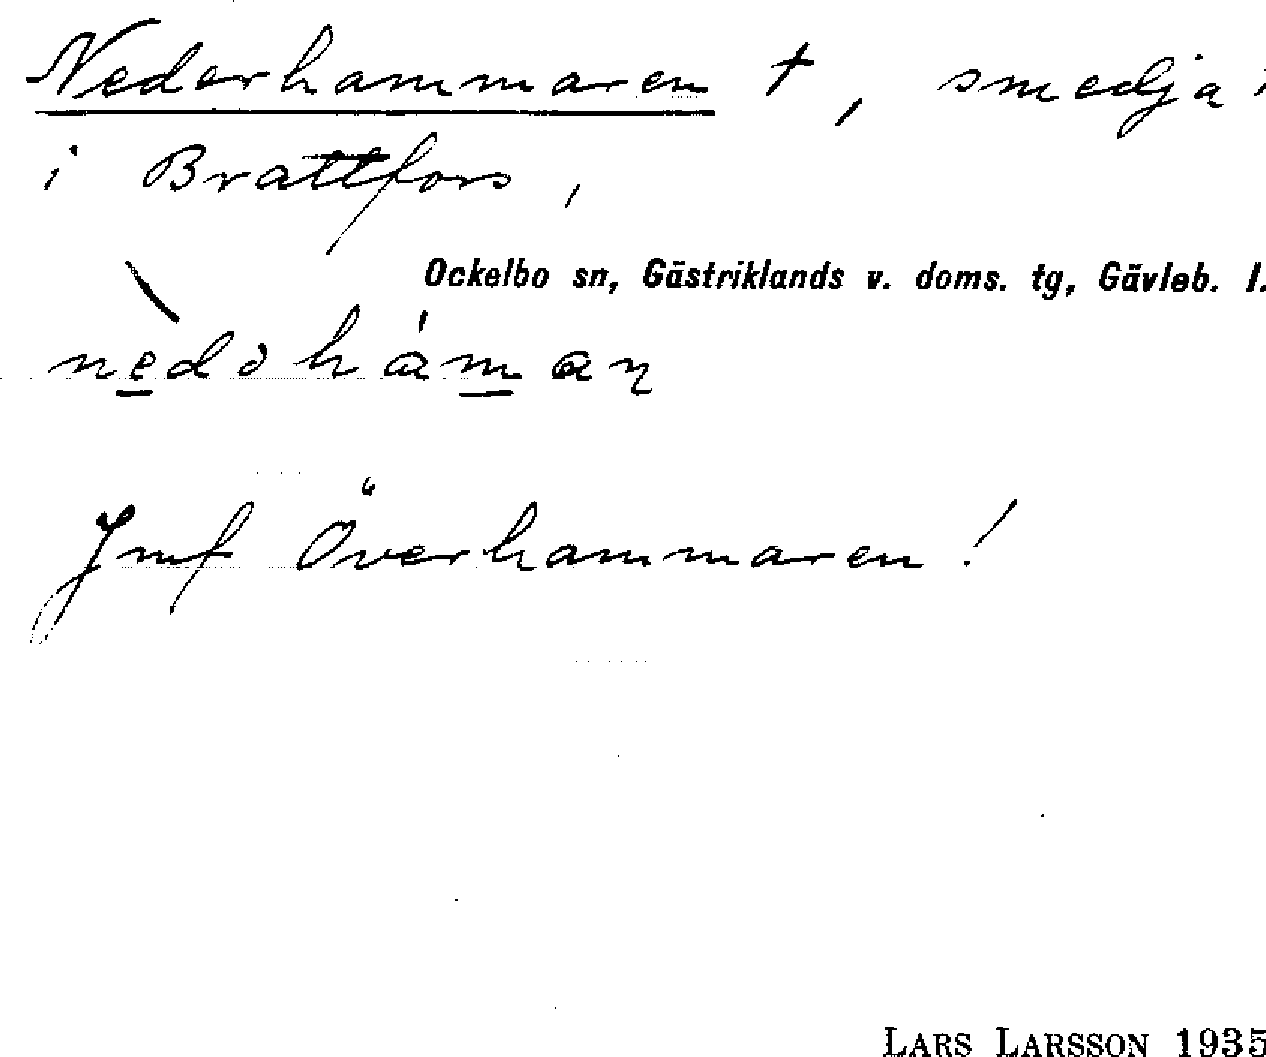 Nederhammaren †, smedja
i Brattfors,
Ockelbo sn, Gästriklands v. doms. tg, Gävleb. l.
Jmf Överhammaren!
LARS LARSSON 1935